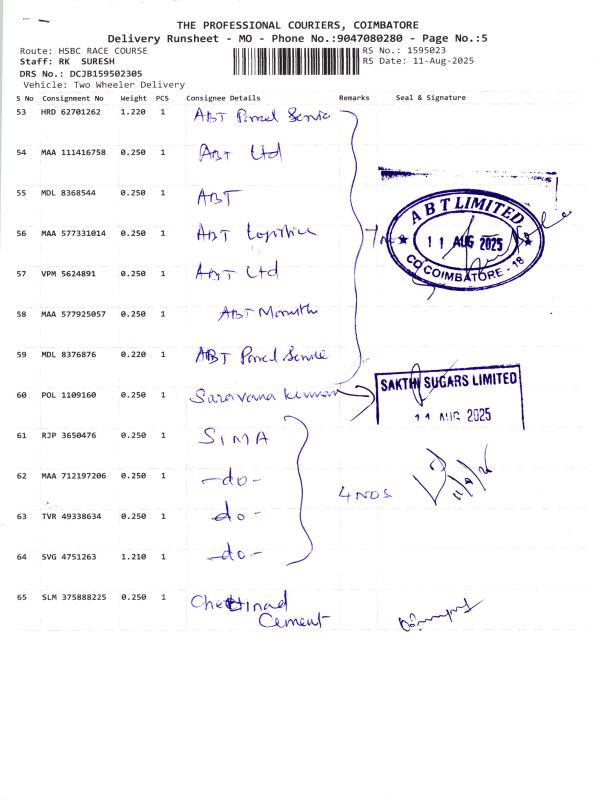 THE PROFESSIONAL COURIERS, COIMBATORE
Delivery Runsheet - MO - Phone No.:9047080280 - Page No.:5
Route: HSBC RACE COURSE
RS No.: 1595023
Staff: RK SURESH
RS Date: 11-Aug-2025
DRS No.: DCJB159502305
Vehicle: Two Wheeler Delivery
S No Consignment No Weight PCS Consignee Details Remarks Seal & Signature
53 HRD 62701262 1.220 1 ABT Parcel Service
54 MAA 111416758 0.250 1 ABT Ltd
55 MDL 8368544 0.250 1 ABT
56 MAA 577331014 0.250 1 ABT Logistics
ABT LIMITED
11 AUG 2025
COIMBATORE - 18
57 VPM 5624891 0.250 1 ABT Ltd
58 MAA 577925057 0.250 1 ABT Maruthi
59 MDL 8376876 0.220 1 ABT Parcel Service
60 POL 1109160 0.250 1 Saravana Kumar
SAKTHI SUGARS LIMITED
11 AUG 2025
61 RJP 3650476 0.250 1 SIMA
62 MAA 712197206 0.250 1 -do-
4 NOS
63 TVR 49338634 0.250 1 do-
64 SVG 4751263 1.210 1 -do-
65 SLM 375888225 0.250 1 Chettinad
Cement